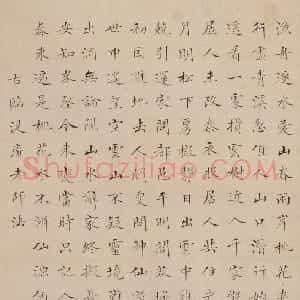 漁舟逐水愛山春兩岸桃花
行盡青溪忽值人山口潛行
遙看一處攢雲樹近入千家
居人未改秦衣服居人共住
月明松下房櫳靜日出雲中
競引還家問都邑平明閭巷
初因避地去人間更問神仙
世中遙望空雲山不疑靈境
出洞無論隔山水辭家終擬
安知峰壑今來變當時只記
春來遍是桃花水不辨仙源
師法
Shufaziliao.com